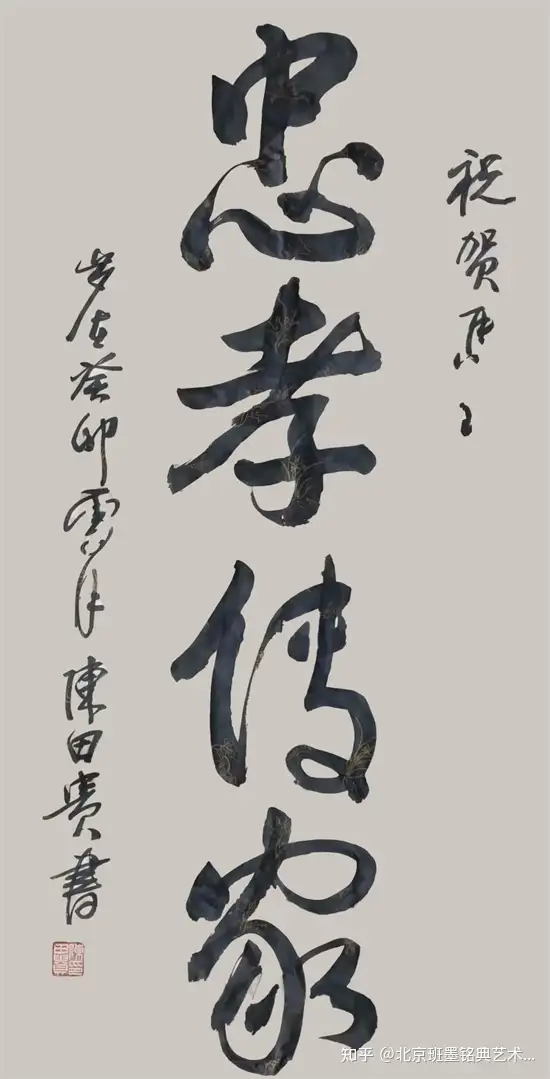 祝贺馬
忠孝傳家
岁在癸卯 月陳田貴書
知乎 @北京班墨铭典艺术...